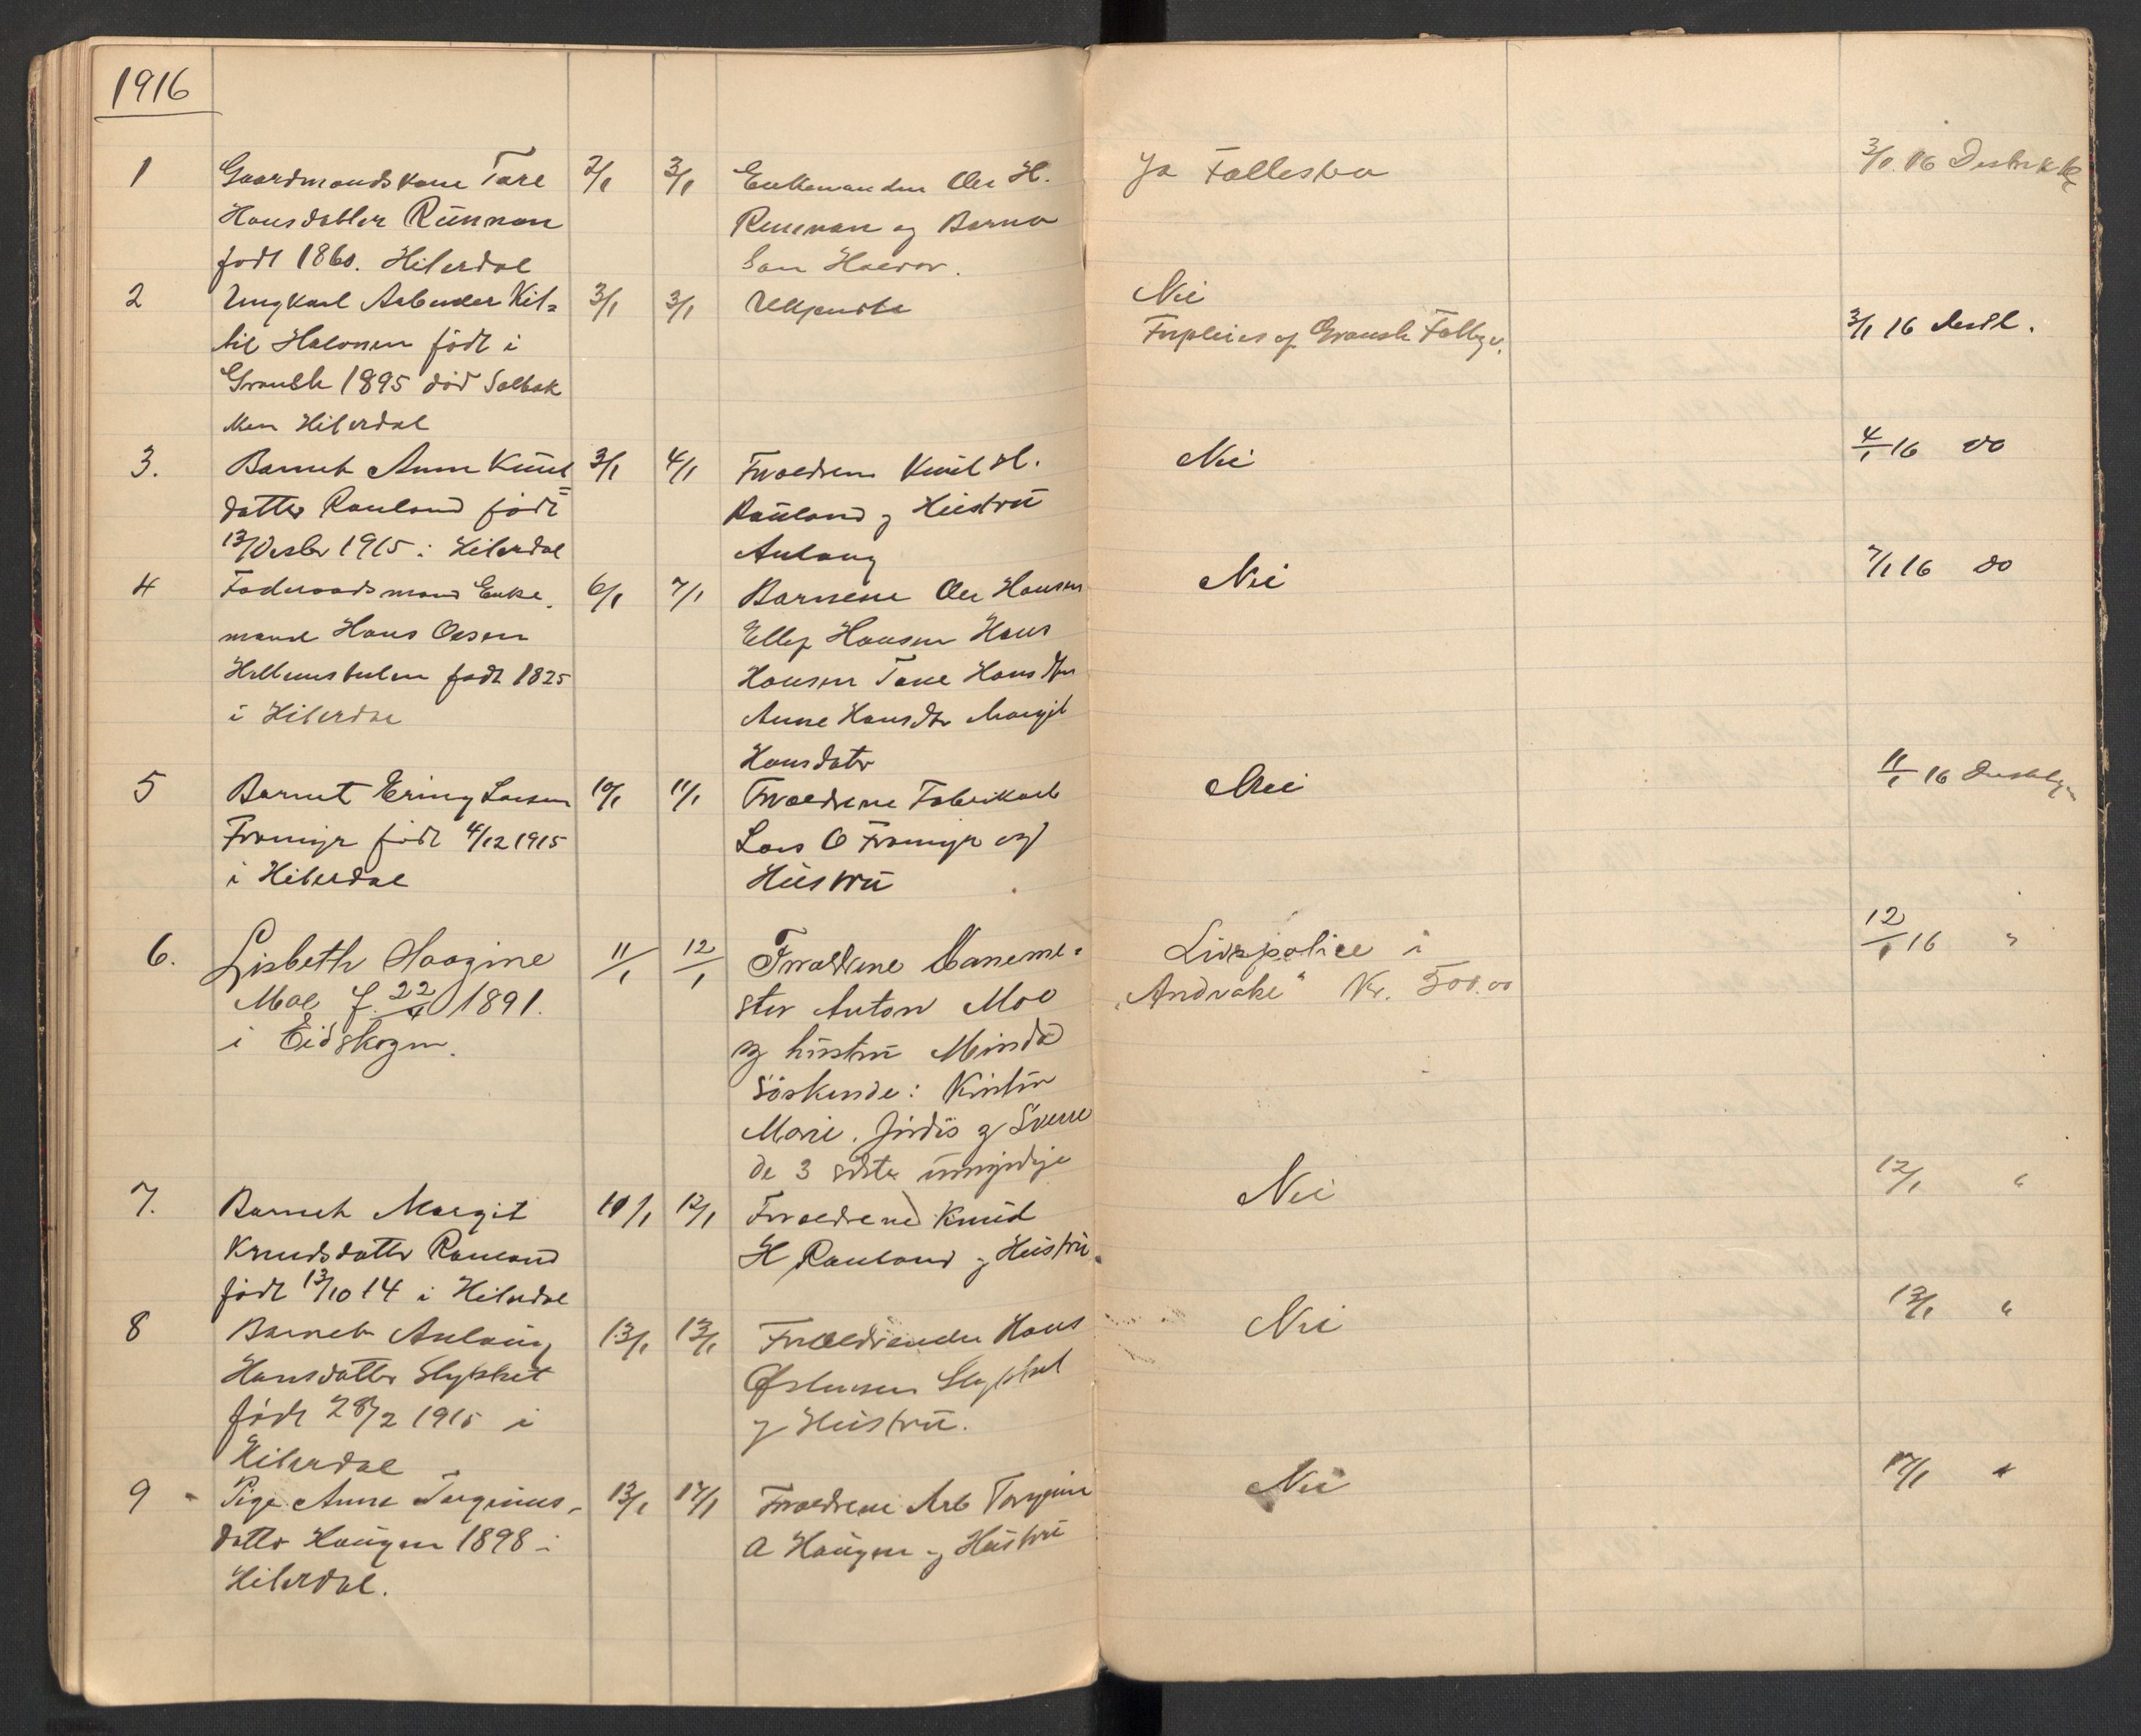 1916
1 Gaardmandskone Tare 2/1 3/1 Enkemanden Ole H. Ja Fallesbo 3/1 16
Hansdatter Runnan og Barna
født 1860. Hiterdal
2 Ungkarl Arbeider Kit= 3/1 3/1 Ukjendte Nei 3/1 16
til Halvorsen født i af Gransh.
Gransh 1895 død Solbak
ken Hiterdal
3. Barnet Anne Knud 3/1 4/1 Forældrene Knut H. Nei 4/1 16 do
datter Rauland født Rauland og Hustru
13/Desbr 1915 i Hiterdal Aslaug
4 Føderaadsmand Enke 6/1 7/1 Barnene Ole Hansen Nei 7/1 16 do
mand Hans Olsen Ellef Hansen Hans
født 1825 Hansen Tone Hansdtr
i Hiterdal Anne Hansdtr Margit
Hansdatr
5 Barnet Erling Larsen 10/1 11/1 Forældrene Nei 11/1 16
Fromyr født 4/12 1915 Lars O Fromyr og
i Hiterdal Hustru
6. Lisbeth Aagine 11/1 12/1 Forældrene Baneme= Livspolice i 12/1 16 "
Moe f. 22/4 1891. ster Anton Moe "Andvake" Kr. 500.00
i Eidskogen. og hustru Minda
Søskende: Kristin
Marie, Jordis og Sverre
de 3 sidste umyndige
7. Barnet Margit 10/1 12/1 Forældrene Knud Nei 12/1 "
Knudsdatter Rauland H Rauland og Hustru.
født 13/10 14 i Hiterdal
8 Barnet Aslaug 13/1 13/1 Forældrene Hans Nei 13/1 "
Hansdatter
født 28/2 1915 i og Hustru.
Hiterdal
9 Pige Anne Torgrims= 13/1 17/1 Forældrene Arb Torgrim Nei 17/1 "
datter Haugen 1898 i A Haugen og Hustru
Hiterdal.